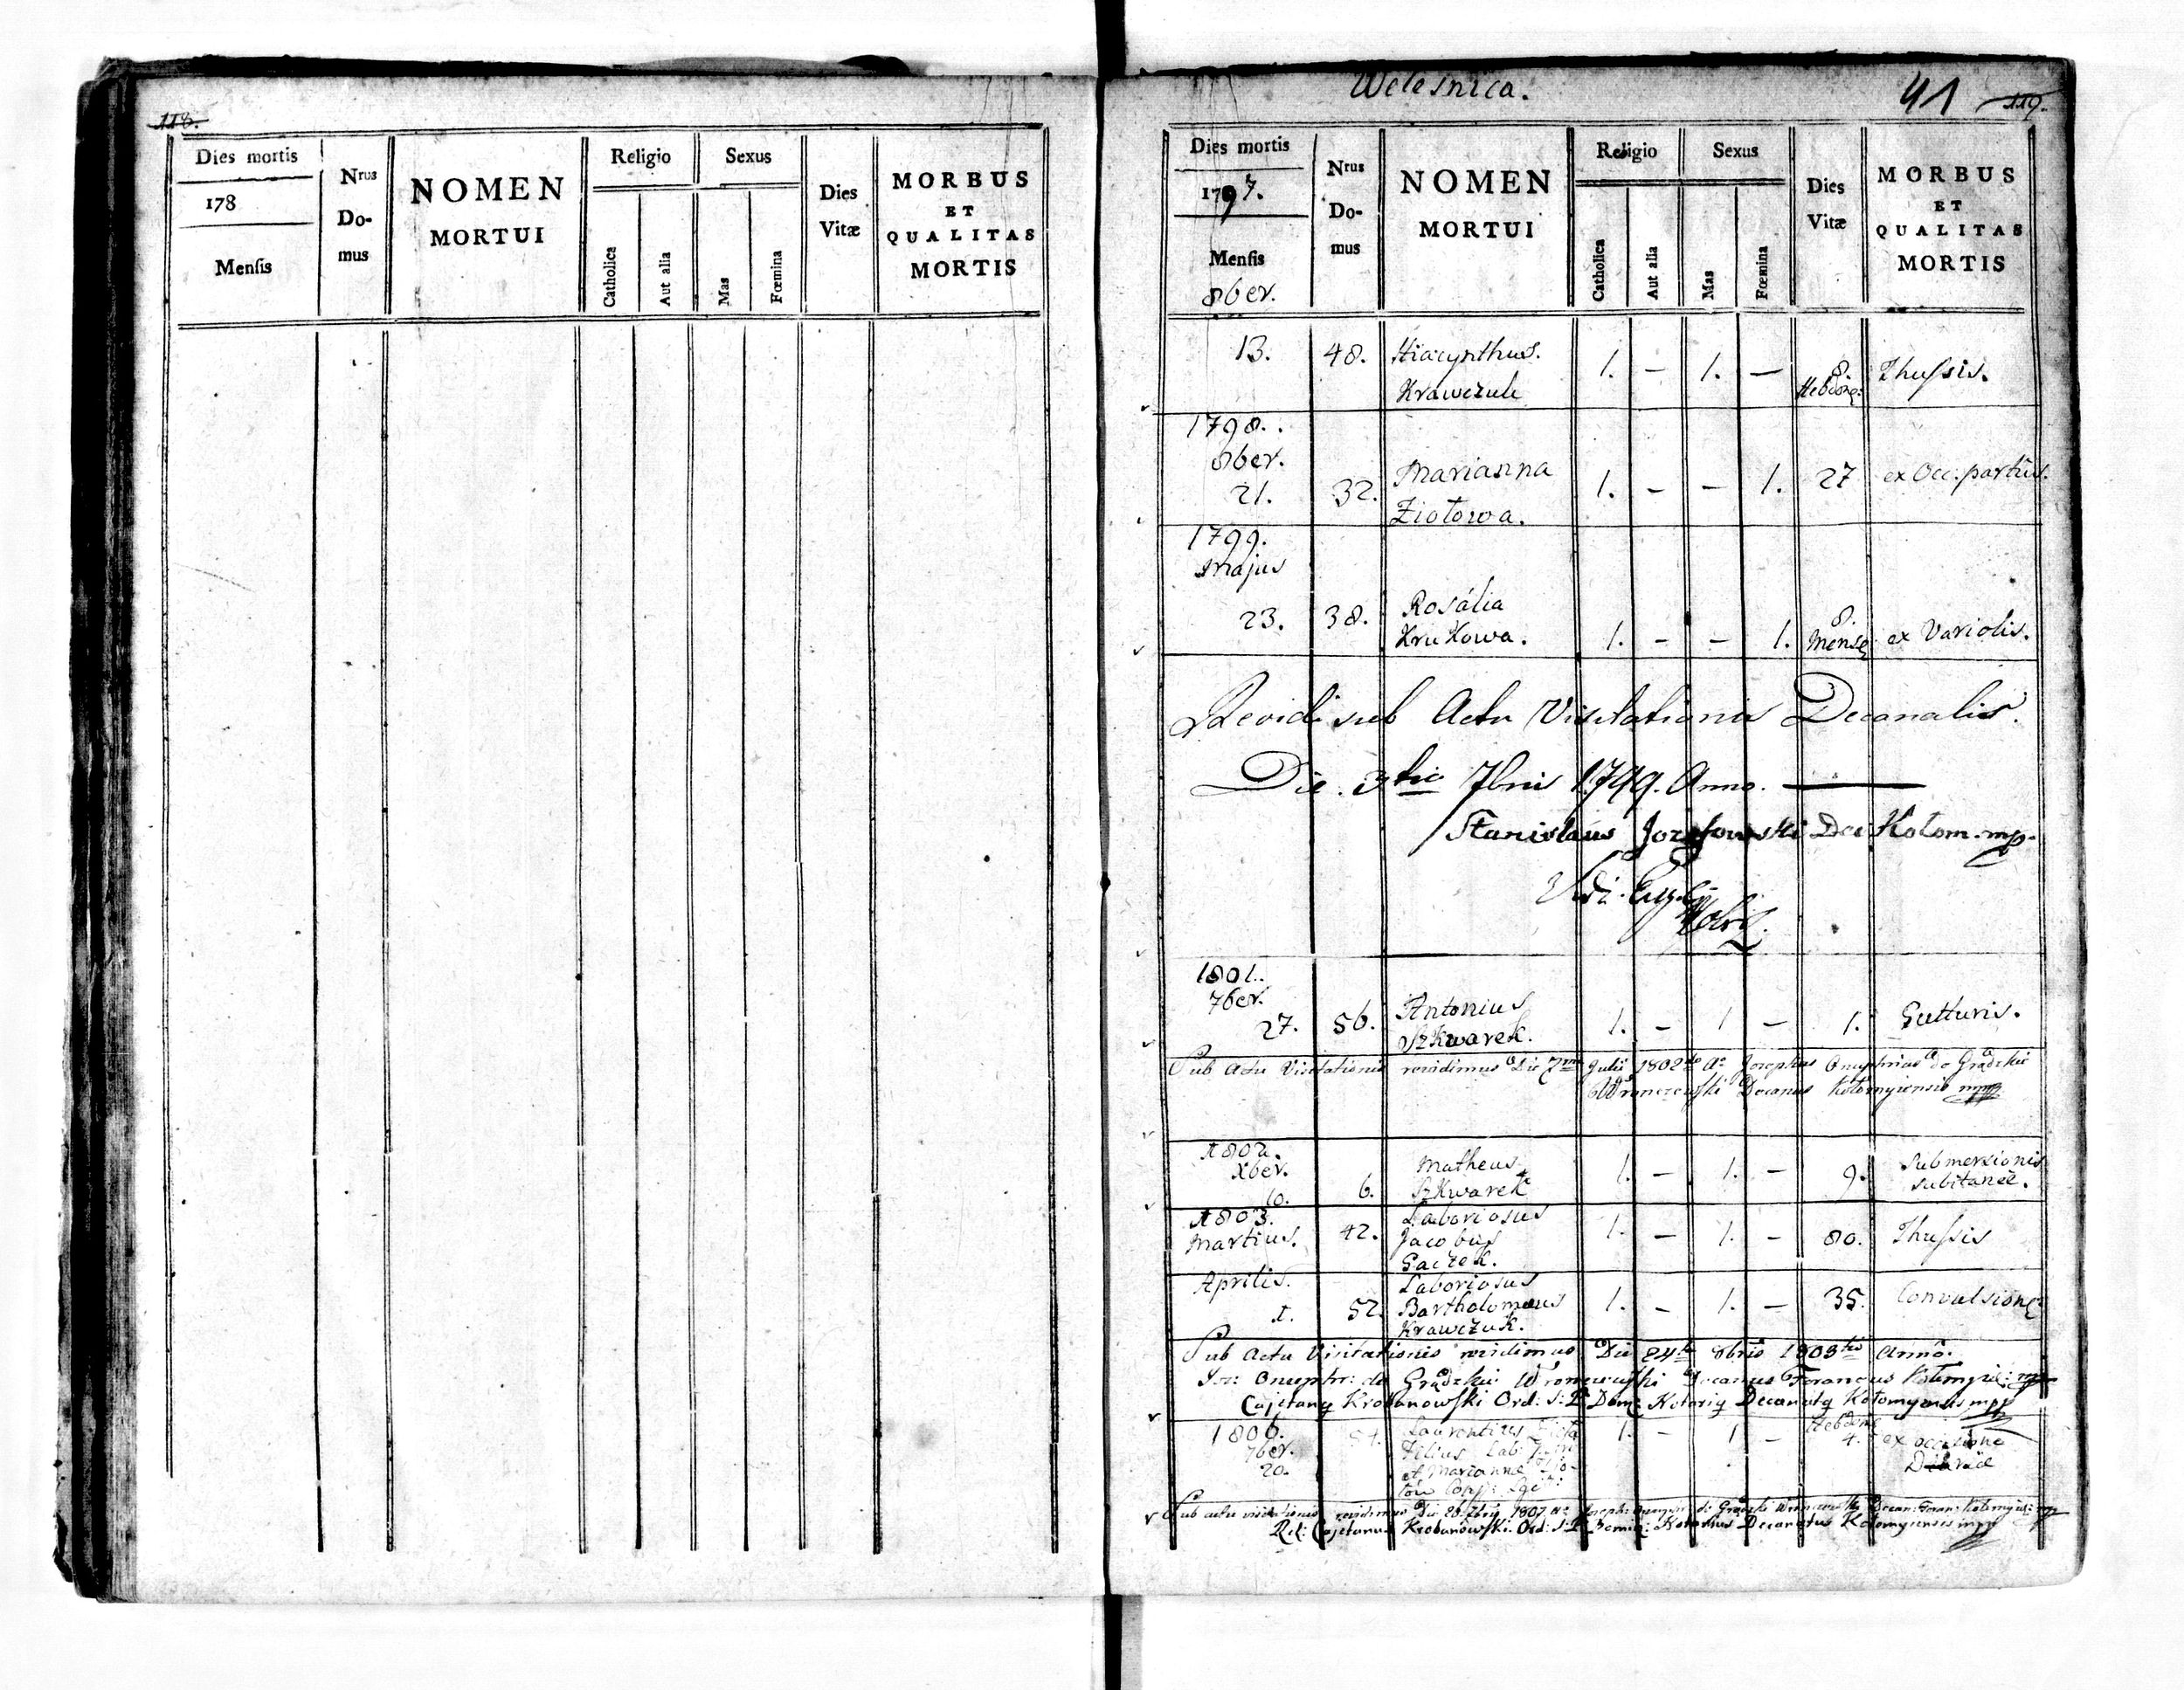 118.
Dies mortis
178
Mensis
Nrus
Do-
mus
NOMEN
MORTUI
Religio
Catholica
Aut alia
Sexus
Mas
Fœmina
Dies
Vitæ
MORBUS
ET
QUALITAS
MORTIS
Welesnica.
41 119.
Dies mortis
1797.
Mensis
8ber.
Nrus
Do-
mus
NOMEN
MORTUI
Religio
Catholica
Aut alia
Sexus
Mas
Fœmina
Dies
Vitæ
MORBUS
ET
QUALITAS
MORTIS
13. 48. Hiacynthus. 1. – 1. – 8. Thussis.
Krawczuk
1798.
8ber.
21. 32. Marianna 1. – – 1. 27 ex Occ: partus.
Ziołowa.
1799.
Majus
23. 38. Rosalia
Krukowa. 1. – – 1. 8. Mense ex Variolis.
Revidi sub Actu Visitationis Decanalis.
Die. 3tia 7bris 1799. Anno.
Stanislaus Jozefowski Dec Kołom. mp.
Vidi
1801.
7ber.
27. 56. Antonius 1. – 1 – 1. Gutturis.
Szkwarek.
Sub Actu Visitationis revidimus Die 7ma Julii 1802do Ao Josephus Onuphrius de Grądzkie
Wronczewski Decanus Kołomyiensis mpp
1802.
Xber.
6. Matheus 1. – 1. – 9. Submersionis
Szkwarek subitaneæ.
1803.
Martius. 42. Laboriosus 1. – 1. – 80. Thussis
Jacobus
Gaczek.
Aprilis.
1. 52. Laboriosus 1. – 1. – 35. Convulsione
Bartholomæus
Krawczuk.
Sub Actu Visitationis revidimus Die 24ta 8bris 1803tio Anno.
Jos: Onuphr: de Grądzkie Wronczewski Decanus Foraneus Kołomyie: mp
Cajetanq Krobanowski Ord: S: P. Dom: Notariq Decanatq Kołomyensis mpp
1806.
7ber.
20. 54. Laurentius 1. – 1 – 4. ex occasione
Filius Lab:
et Marianna
Sub actu visitationis revidimus Die 26. 7bris 1807 Ao Joseph: Onuphr: de Grądzkie Wronczewski Decan: Foran: Kołomyie: mp
Rel: Cajetanus Krobanowski Ord: S: P. Domin: Notarius Decanatus Kołomyiensis mpp